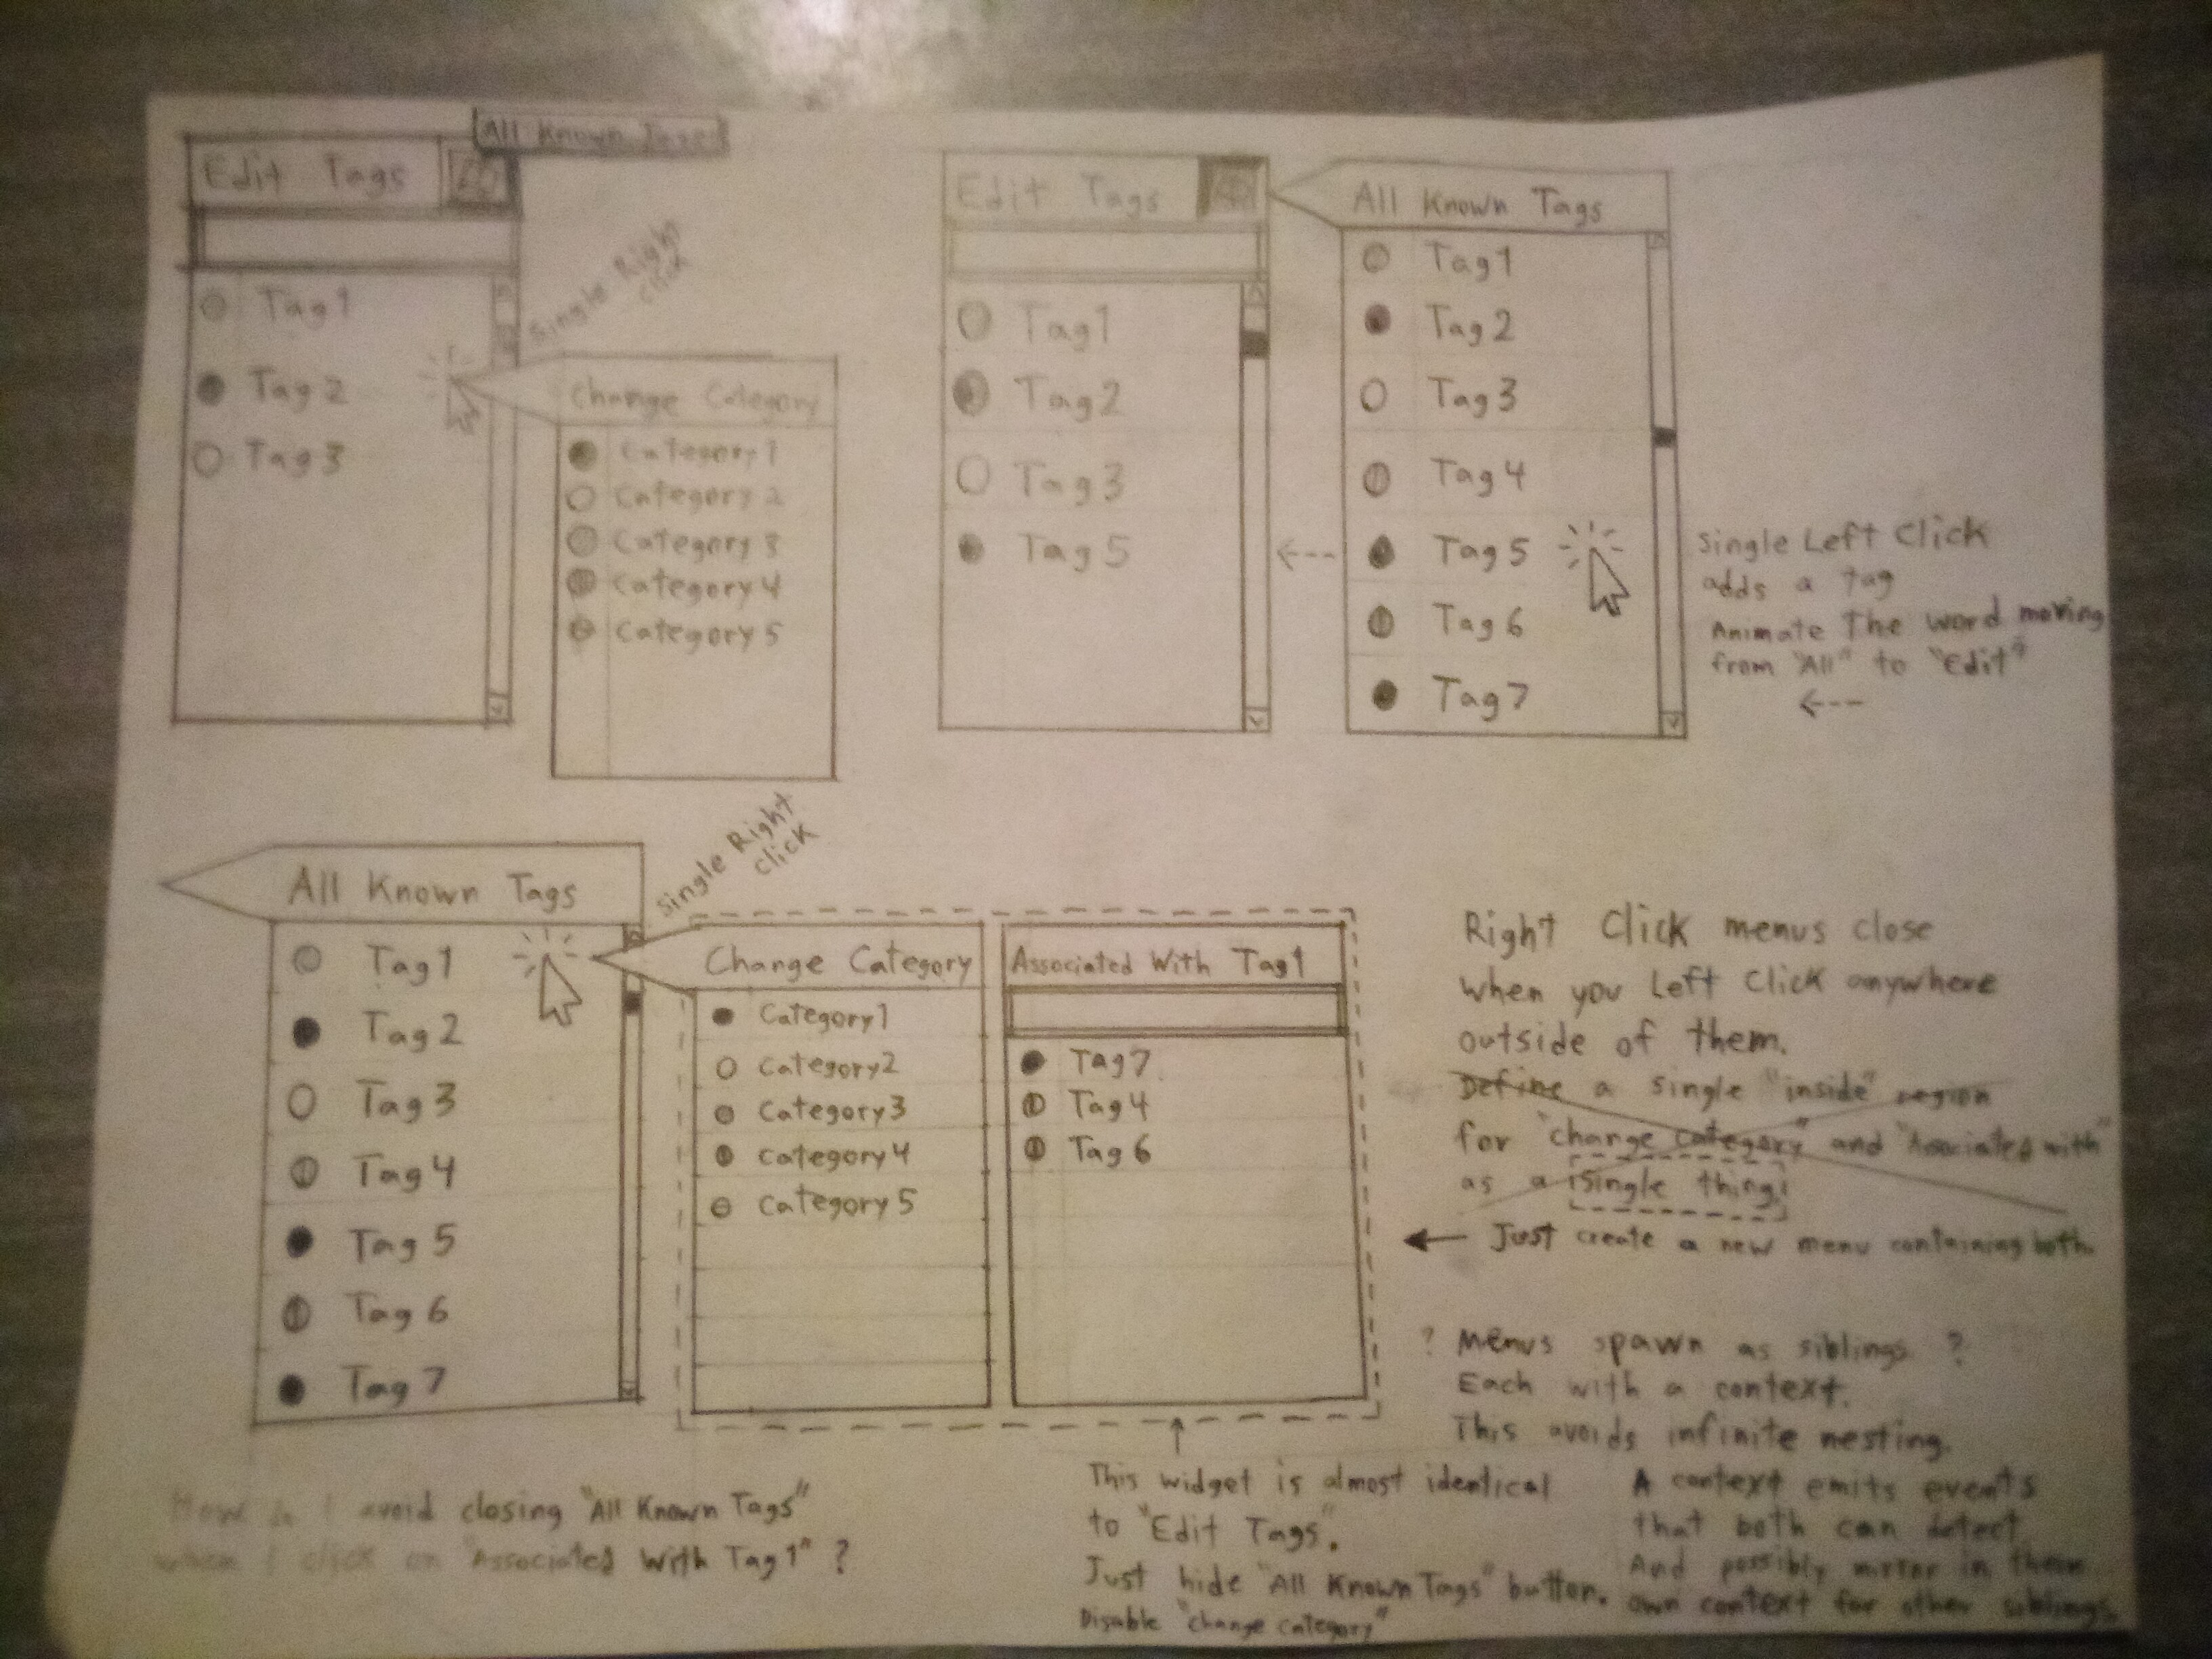 All Known Tags
Edit Tags
Tag1
Tag2
Tag3
Single Right
click
Change Category
Category1
Category2
Category3
Category4
Category5
Edit Tags
Tag1
Tag2
Tag3
Tag5
All Known Tags
Tag1
Tag2
Tag3
Tag4
Tag5
Tag6
Tag7
Single Left Click
adds a tag
Animate the word moving
from "All" to "Edit"
All Known Tags
Tag1
Tag2
Tag3
Tag4
Tag5
Tag6
Tag7
Single Right
click
Change Category
Category1
Category2
Category3
Category4
Category5
Associated With Tag1
Tag7
Tag4
Tag6
Right Click menus close
when you Left Click anywhere
outside of them.
Define a single "inside" region
for "change category" and "Associated with"
as a single thing.
Just create a new menu containing both.
? Menus spawn as siblings ?
Each with a context.
This avoids infinite nesting.
A context emits events
that both can detect
And possibly mirror in their
own context for other siblings.
How do I avoid closing "All Known Tags"
when I click on "Associated With Tag1" ?
This widget is almost identical
to "Edit Tags".
Just hide "All Known Tags" button.
Disable "change category"